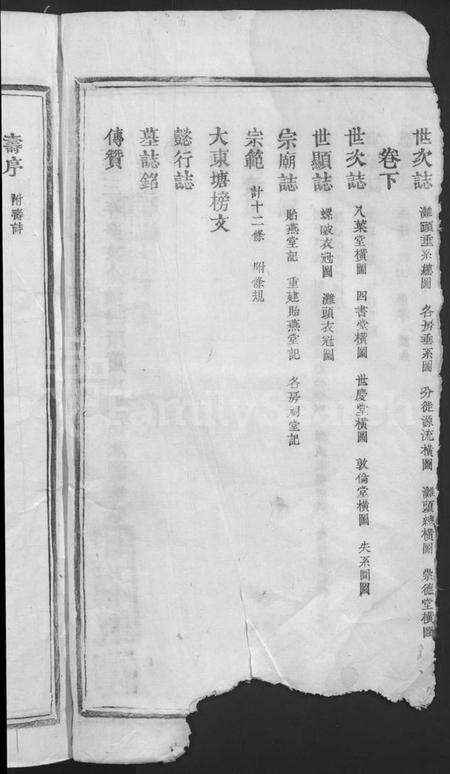 世次誌 灘頭垂系總圖 各房垂系圖 分徙源流橫圖 灘頭總橫圖 崇德堂橫圖
卷下
世次誌 八葉堂橫圖 四書堂橫圖 世慶堂橫圖 敦倫堂橫圖 失系圖圖
世顯誌 螺陂衣冠圖 灘頭衣冠圖
宗廟誌 貽燕堂記 重建貽燕堂記 各房祠堂記
宗範 計十二條 附條規
大東塘榜文
懿行誌
墓誌銘
傳贊
壽序 附壽詩